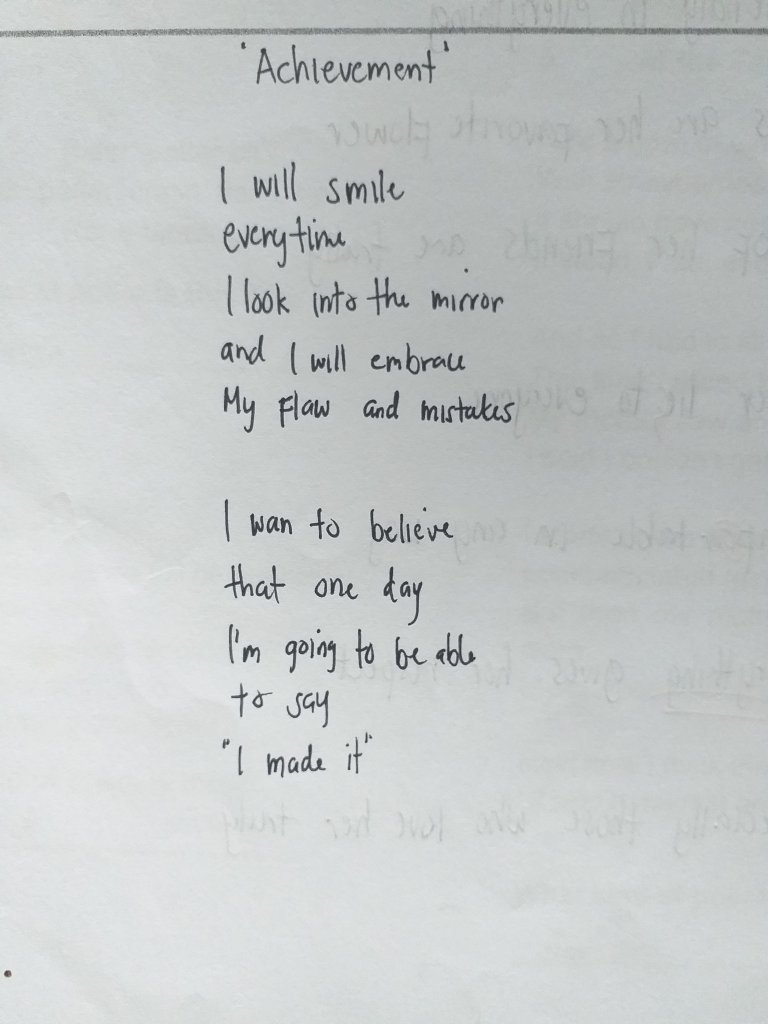 'Achievement'
I will smile
everytime
I look into the mirror
and I will embrace
My Flaw and mistakes
I wan to believe
that one day
I'm going to be able
to say
"I made it"